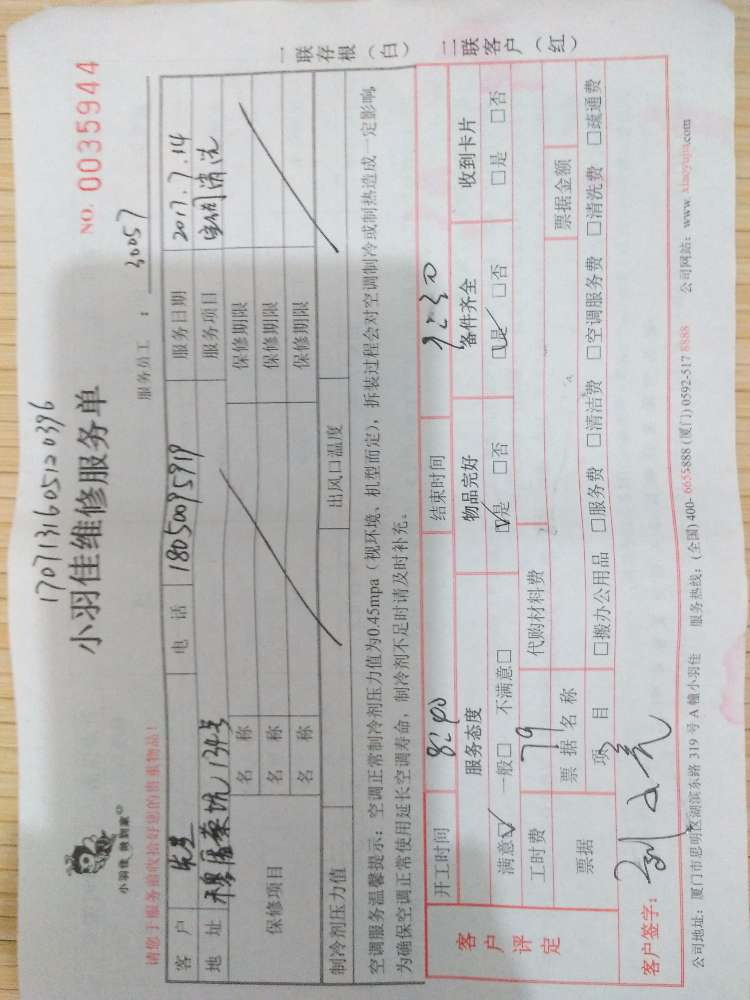 1707131605120396
小羽佳维修服务单
NO. 0035944
小羽佳 独到家
请您于服务前收拾好您的贵重物品！
服务员工 ： 30057
客 户 先生 电 话 18050095919 服务日期 2017.7.14
地 址 蔡坑134号 服务项目 空调清洗
保修项目
名 称 保修期限
名 称 保修期限
名 称 保修期限
制冷剂压力值 出风口温度
空调服务温馨提示：空调正常制冷剂压力值为0.45mpa（视环境、机型而定），拆装过程会对空调制冷或制热造成一定影响，
为确保空调正常使用延长空调寿命，制冷剂不足时请及时补充。
一联存根（白） 二联客户（红）
客户评定
开工时间 8:40 结束时间 9:30
服务态度 物品完好 备件齐全 收到卡片
满意☑ 一般□ 不满意□ ☑是 □否 ☑是 □否 □是 □否
工时费 79 代购材料费
票据 票据名称 票据金额
项 目 □搬办公用品 □服务费 □清洁费 □空调服务费 □清洗费 □疏通费
客户签字：
公司地址：厦门市思明区湖滨东路 319 号 A 幢小羽佳 服务热线：(全国) 400-6655888 (厦门) 0592-517 8888 公司网站：www. xiaoyujia.com